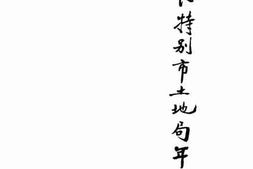 特别市土地局年